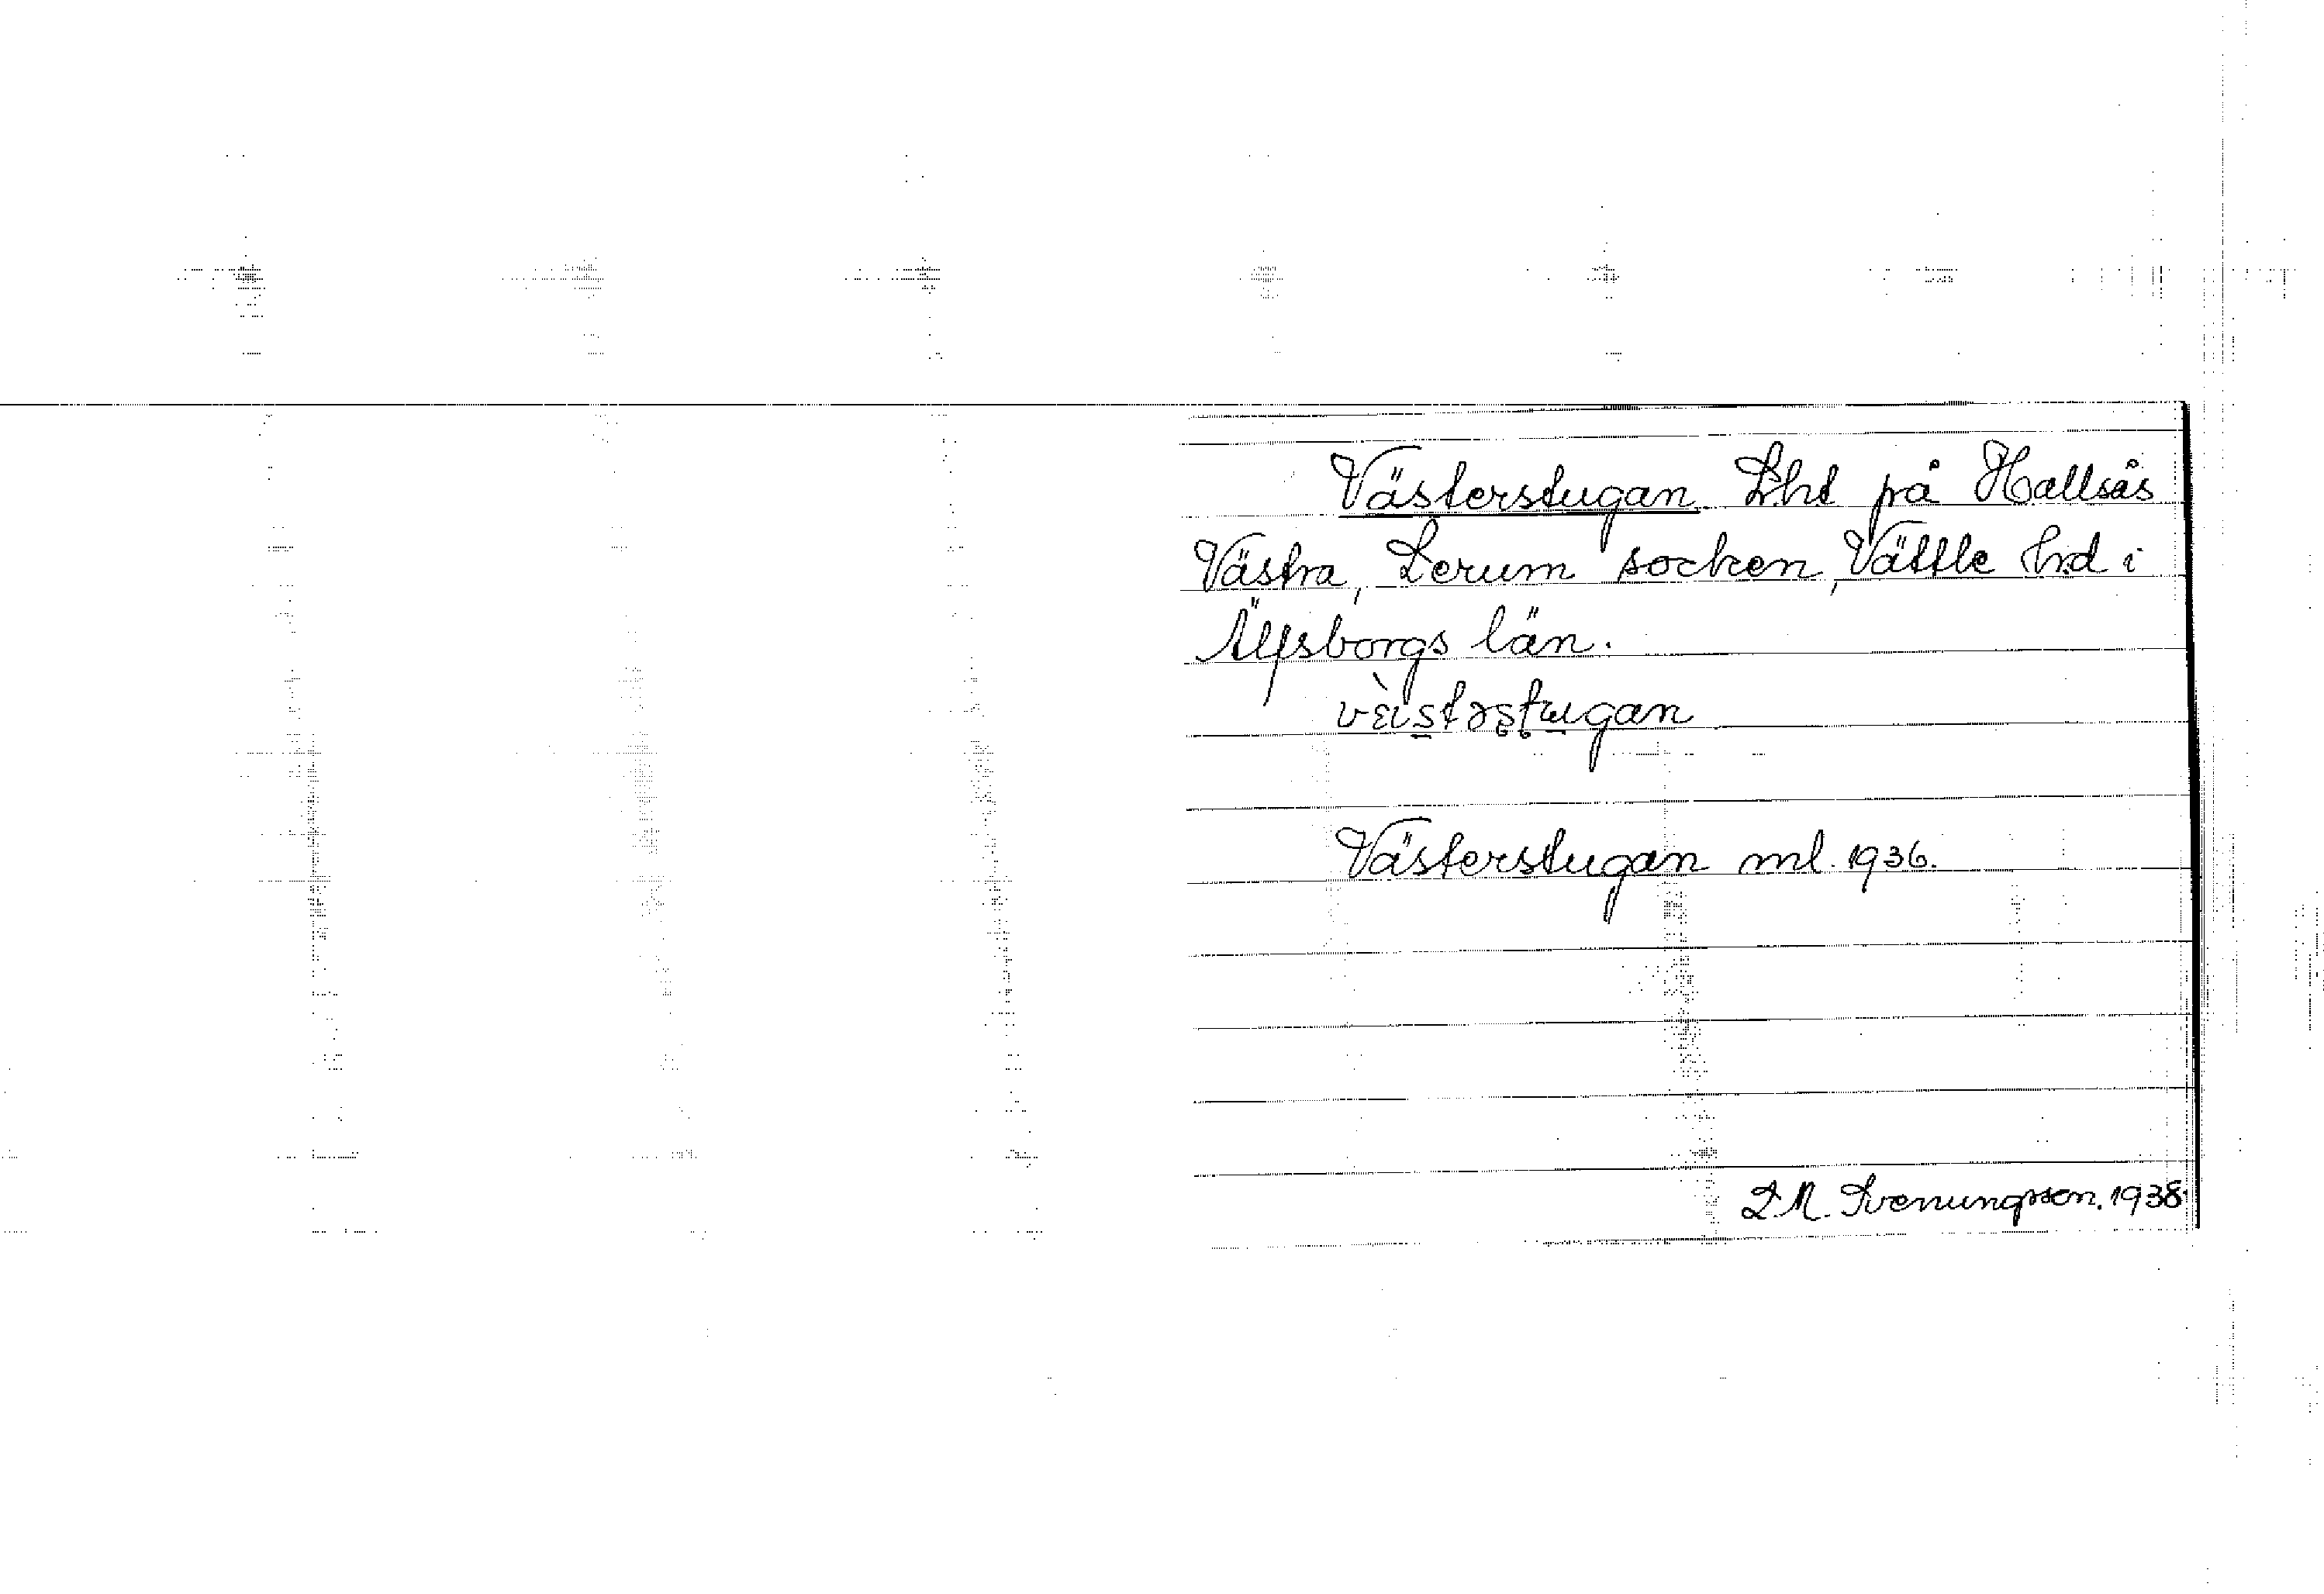 Västerstugan Lht på Hallsås
Västra, Lerum socken, Vättle hd i
Älfsborgs län.
Västerstugan ml. 1936.
Svenungsson. 1938